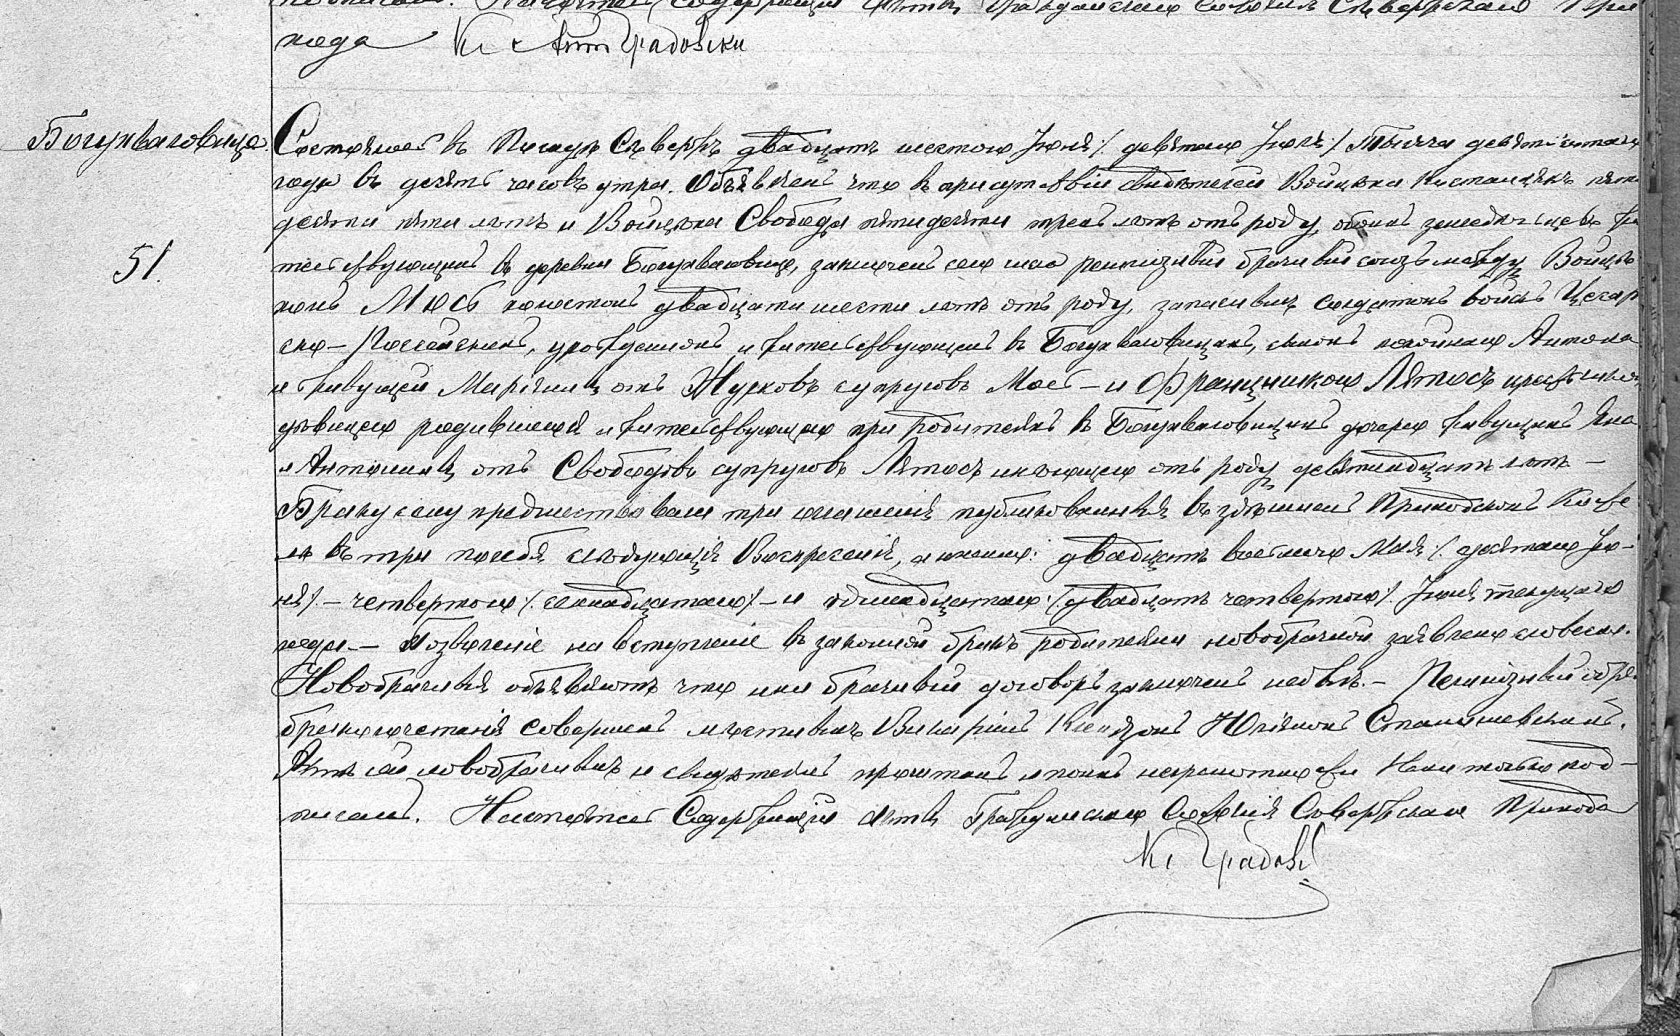 подписали. Настоятель Содержащій Акты Гражданскаго Состоянія Сѣвержскаго При
хода Кс Ант Градовски
Богухваловице
51.
Состоялось въ Посадѣ Сѣвержъ двадцать шестого Іюня /: девятаго Іюля :/ тысяча девятисотаго
года въ десять часовъ утра. Объявляемъ что въ присутствіи свидѣтелей Войцѣха пяти
десяти пяти лѣтъ и Войцѣха Свободы пятидесяти трехъ лѣтъ отъ роду, обоихъ земледѣльцевъ жи
тельствующихъ въ деревни Богухваловице, заключенъ сего числа религіозный брачный союзъ между Войцѣ
хомъ Мюсь холостомъ двадцати шести лѣтъ отъ роду, запаснымъ солдатомъ войскъ Цесар
ско-Россійскихъ, урожденномъ и жительствующемъ въ Богухваловицахъ, сыномъ покойнаго Антона
и живущей Маріанны отъ Журковъ супруговъ Мюсь — и Францишкою Лятосъ
дѣвицею родившеюся и жительствующею при родителяхъ въ Богухваловицахъ дочерью живущихъ Яна
и Антонины отъ Свободовъ супруговъ Лятосъ имѣющею отъ роду девятнадцать лѣтъ —
Браку сему предшествовали три оглашенія публикованныя въ здѣшнемъ Приходскомъ Косте
лѣ въ три послѣдующія Воскресенія, а именно: двадцать восьмого Мая /: десятаго Ію-
ня :/ — четвертаго /: семнадцатаго :/ — и одинадцатаго /: двадцать четвертаго :/ Іюня текущаго
года. — Позволеніе на вступленіе въ законный бракъ родителями новобрачной заявлено словесно.
Новобрачныя объявляютъ что ими брачный договоръ заключенъ небылъ. — Религіозный обря
бракосочетанія совершенъ мѣстнымъ Викаріемъ Ксендзомъ Юліаномъ Станишевскимъ.
Актъ сей новобрачнымъ и свидѣтелямъ прочитанъ а по ихъ неграмотности Нами только под-
писанъ. Настоятель Содержащій Акты Гражданскаго Состоянія Сѣвержскаго Прихода
Кс Градовс